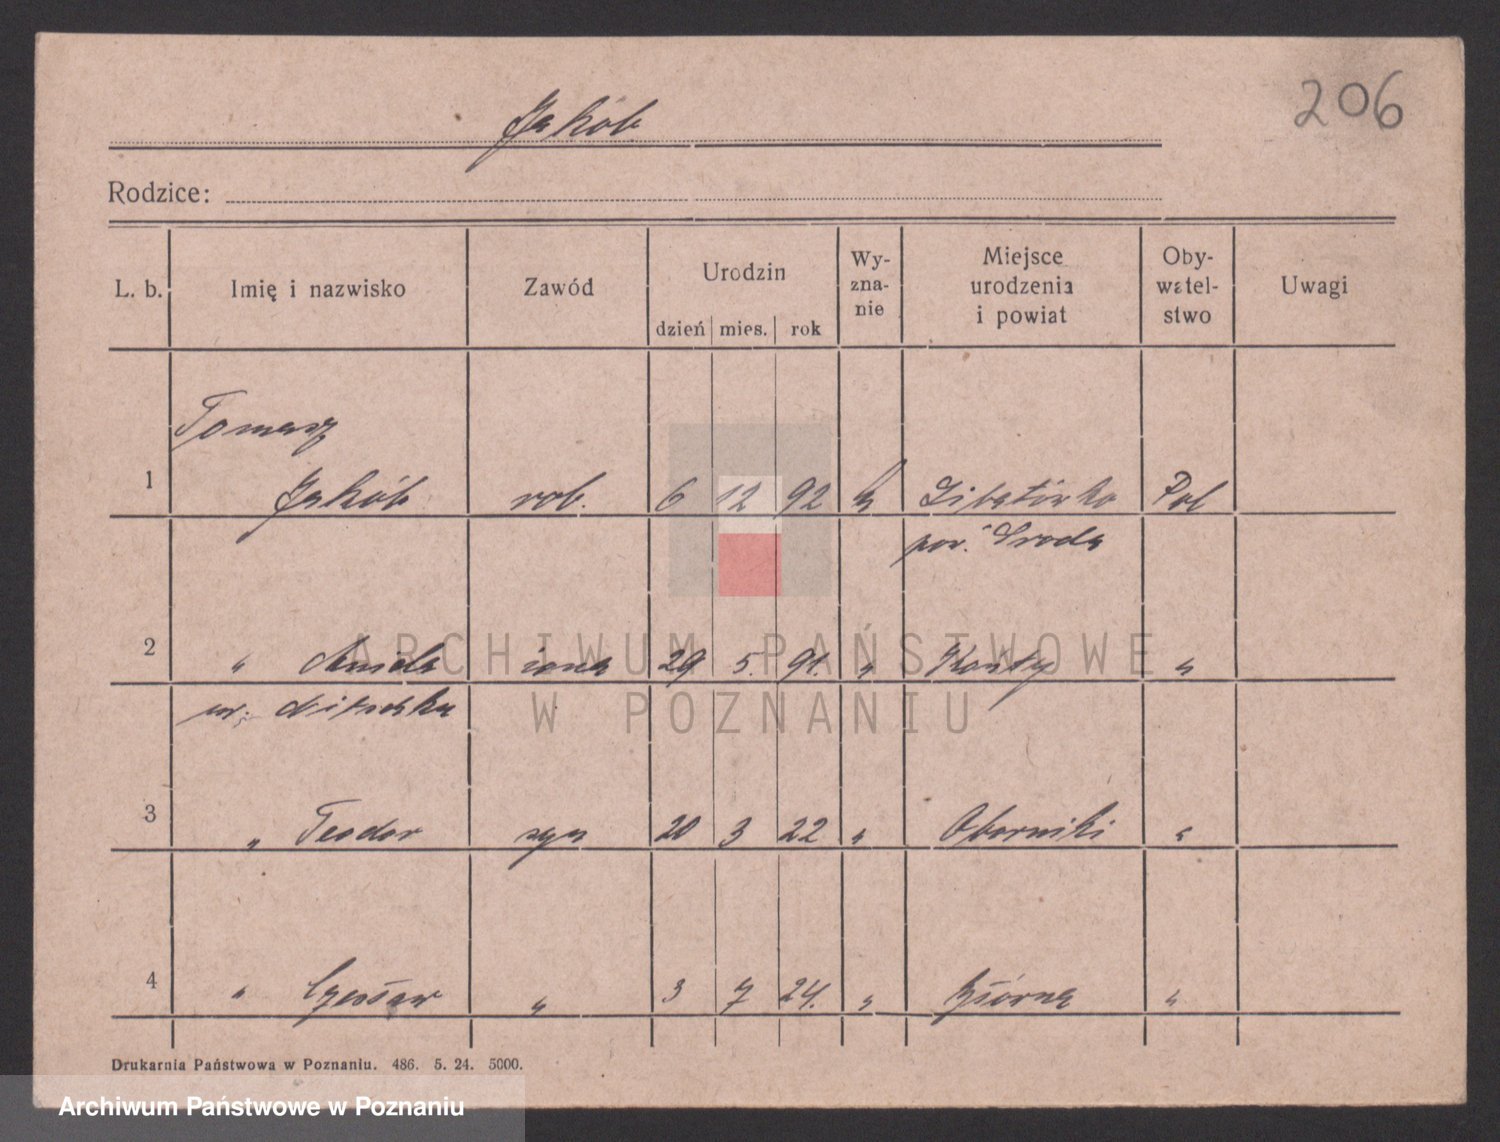 206
Jakób
Rodzice:
L. b. Imię i nazwisko Zawód Urodzin dzień mies. rok Wy-zna-nie Miejsce urodzenia i powiat Oby-watel-stwo Uwagi
Tomasz
1 Jakób rob. 6 12 92 Pol
pow. Środa
2 " żona 29 5. 91. " "
ur.
3 " Teodor syn 20 3 22 " Oborniki "
4 " Czesław " 3 7 24. " "
Drukarnia Państwowa w Poznaniu. 486. 5. 24. 5000.
ARCHIWUM PAŃSTWOWE
W POZNANIU
Archiwum Państwowe w Poznaniu